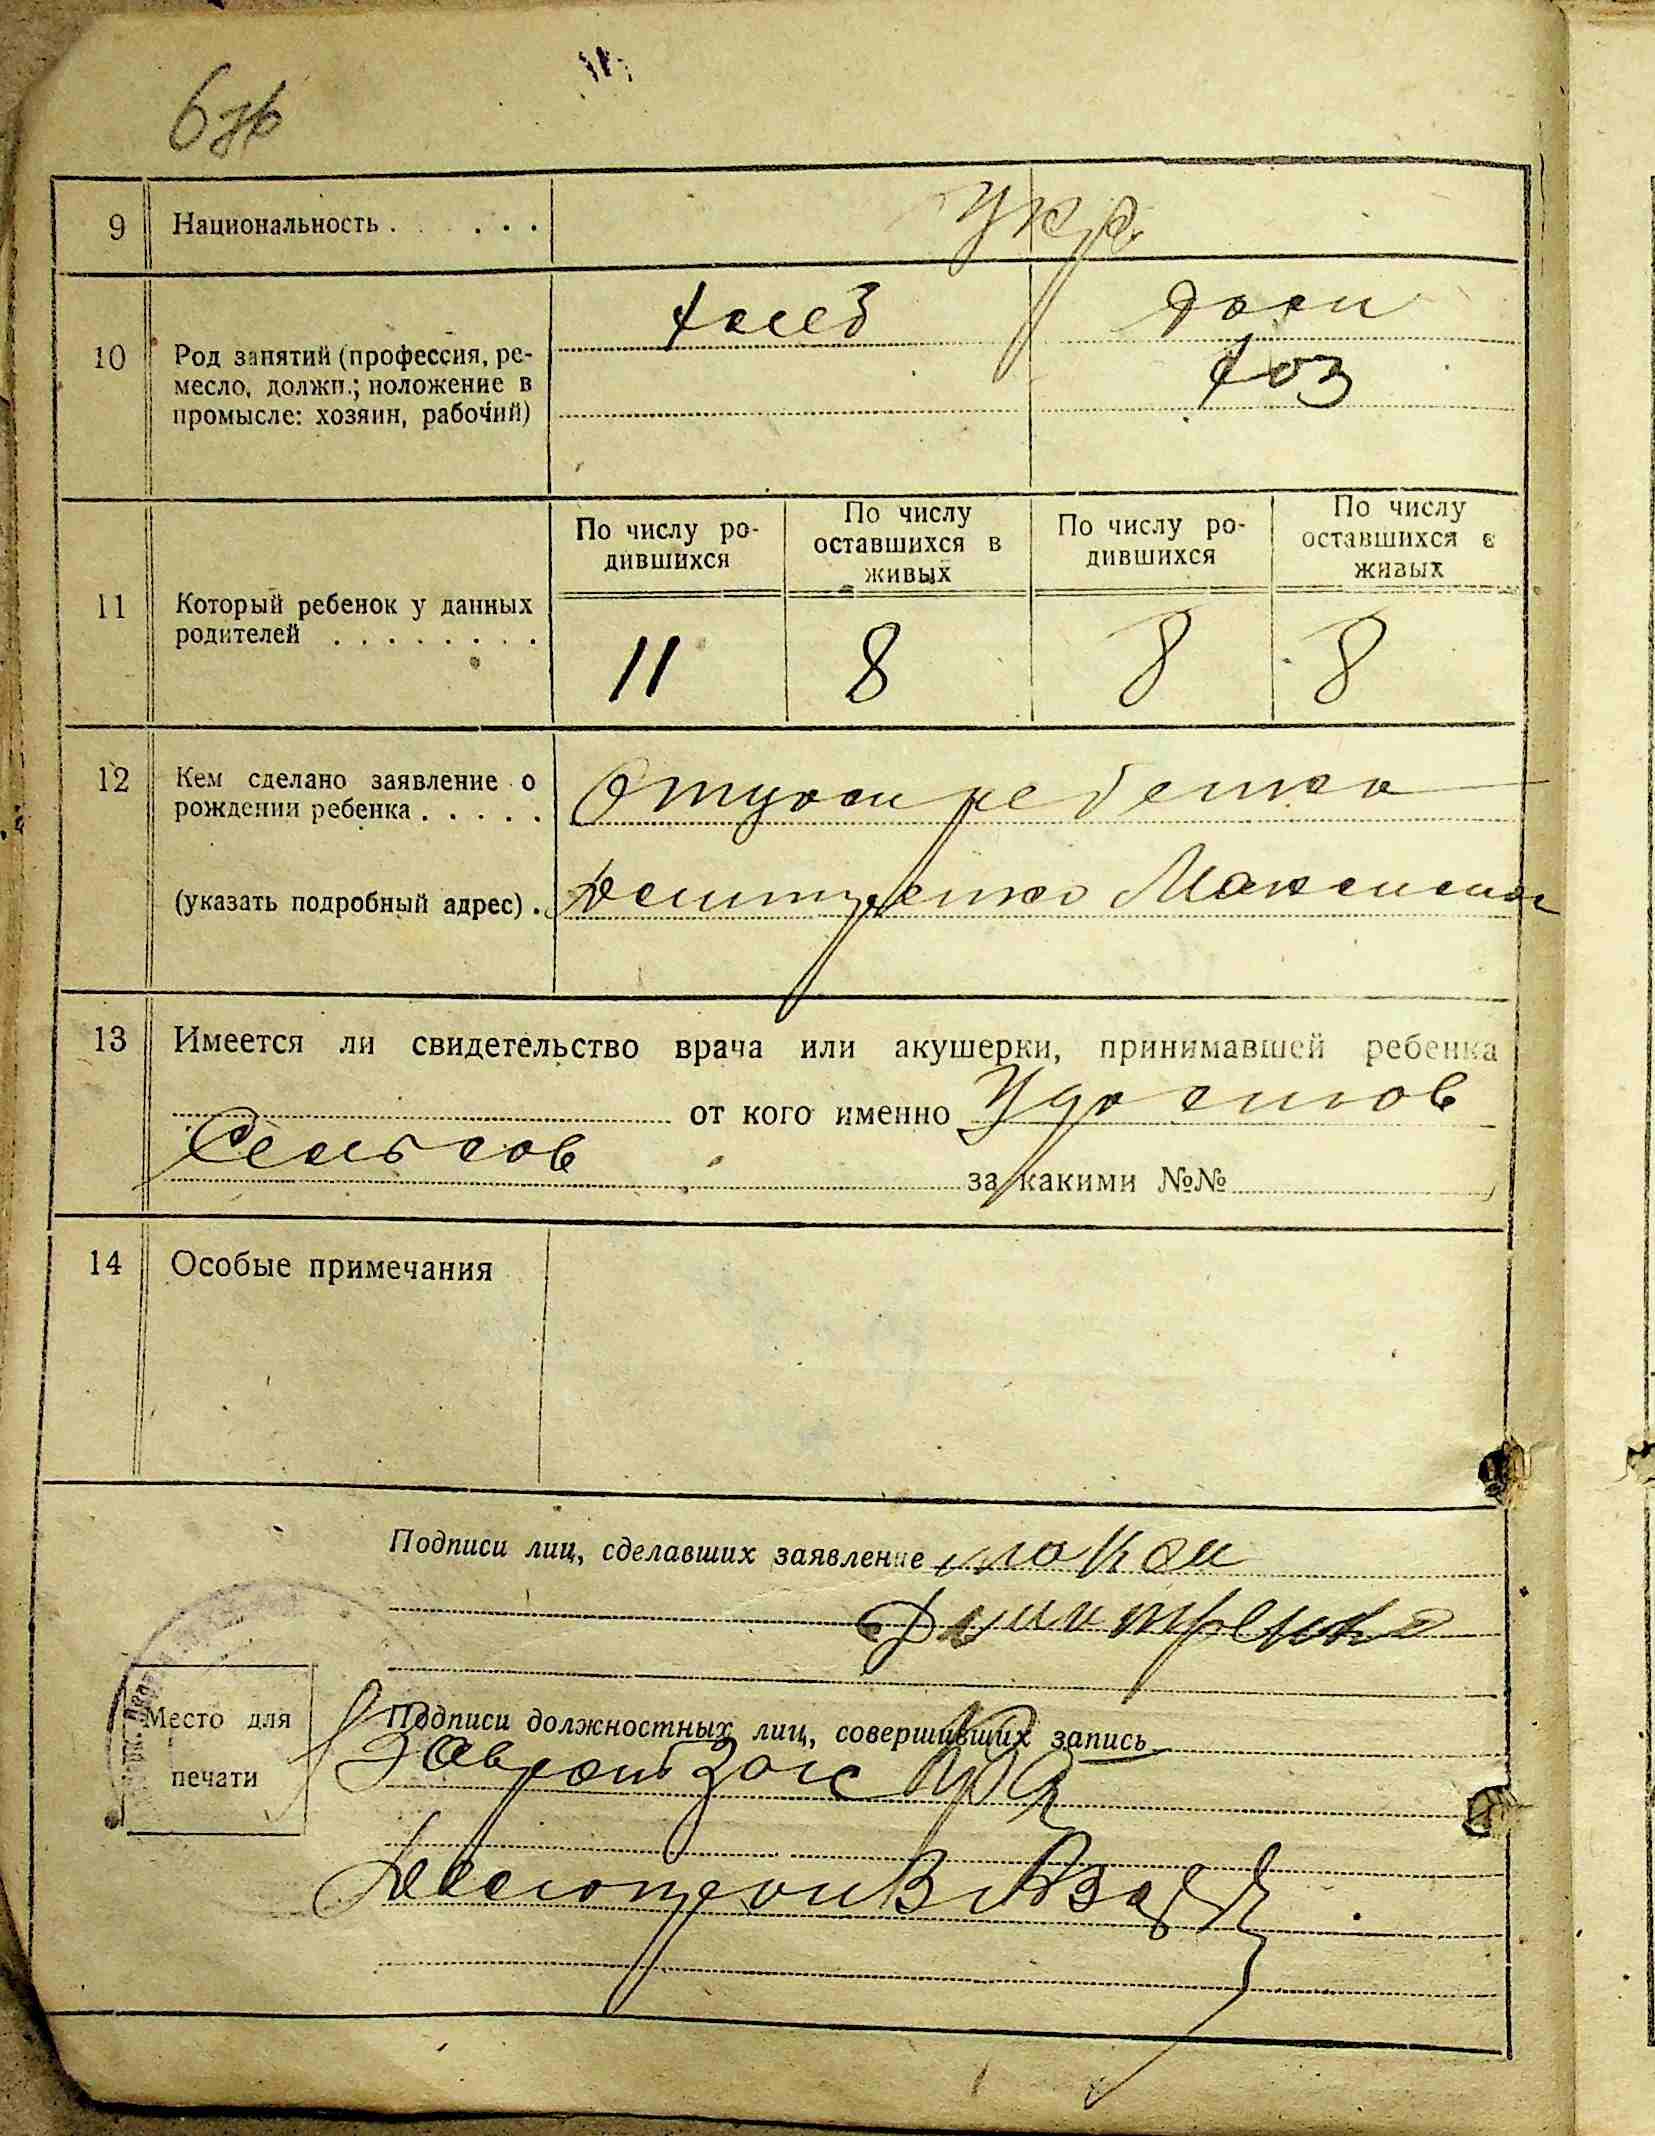 9 Национальность . . . . . . укр.
10 Род занятий (профессия, ре-
месло, должн.; положение в
промысле: хозяин, рабочий)
хлеб дом
хоз
11 Который ребенок у данных
родителей . . . . . . . .
По числу ро-
дившихся
По числу
оставшихся в
живых
По числу ро-
дившихся
По числу
оставшихся в
живых
11 8 8 8
12 Кем сделано заявление о
рождении ребенка . . . . .
Отцом ребенка
(указать подробный адрес) . Дмитренко Максимом
13 Имеется ли свидетельство врача или акушерки, принимавшей ребенка
от кого именно Удостов
Сельсов за какими №№
14 Особые примечания
Подписи лиц, сделавших заявление
Дмитренко
Место для
печати
Подписи должностных лиц, совершивших запись
Завром Загс